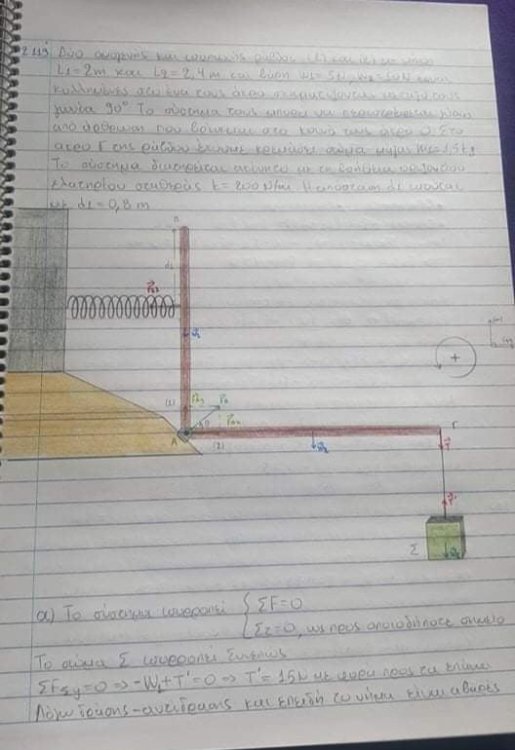 2.119 Δύο ομογενείς και ισοπαχείς ράβδοι (1) και (2) με μήκη
L1 = 2m και L2 = 2,4 m και βάρη w1 = 5N, w2 = 10N είναι
κολλημένες στο ένα τους άκρο σχηματίζοντας μεταξύ τους
γωνία 90° Το σύστημα τους μπορεί να περιστρέφεται γύρω
από άρθρωση που βρίσκεται στο κοινό τους άκρο Ο. Στο
άκρο Γ της ράβδου έχουμε κρεμάσει σώμα μάζας m = 1,5kg
Το σύστημα διατηρείται ακίνητο με τη βοήθεια οριζόντιου
ελατηρίου σταθεράς k = 200 N/m Η απόσταση d1 ισούται
με d1 = 0,8 m
d1
(1)
A
(2)
Γ
Σ
+
α) Το σύστημα ισορροπεί { ΣF = 0
Στ = 0, ως προς οποιοδήποτε σημείο
Το σώμα Σ ισορροπεί συνεπώς
ΣFΣy = 0 ⇒ -WΣ + T' = 0 ⇒ T' = 15N με φορά προς τα επάνω
Λόγω δράσης-αντίδρασης και επειδή το νήμα είναι αβαρές